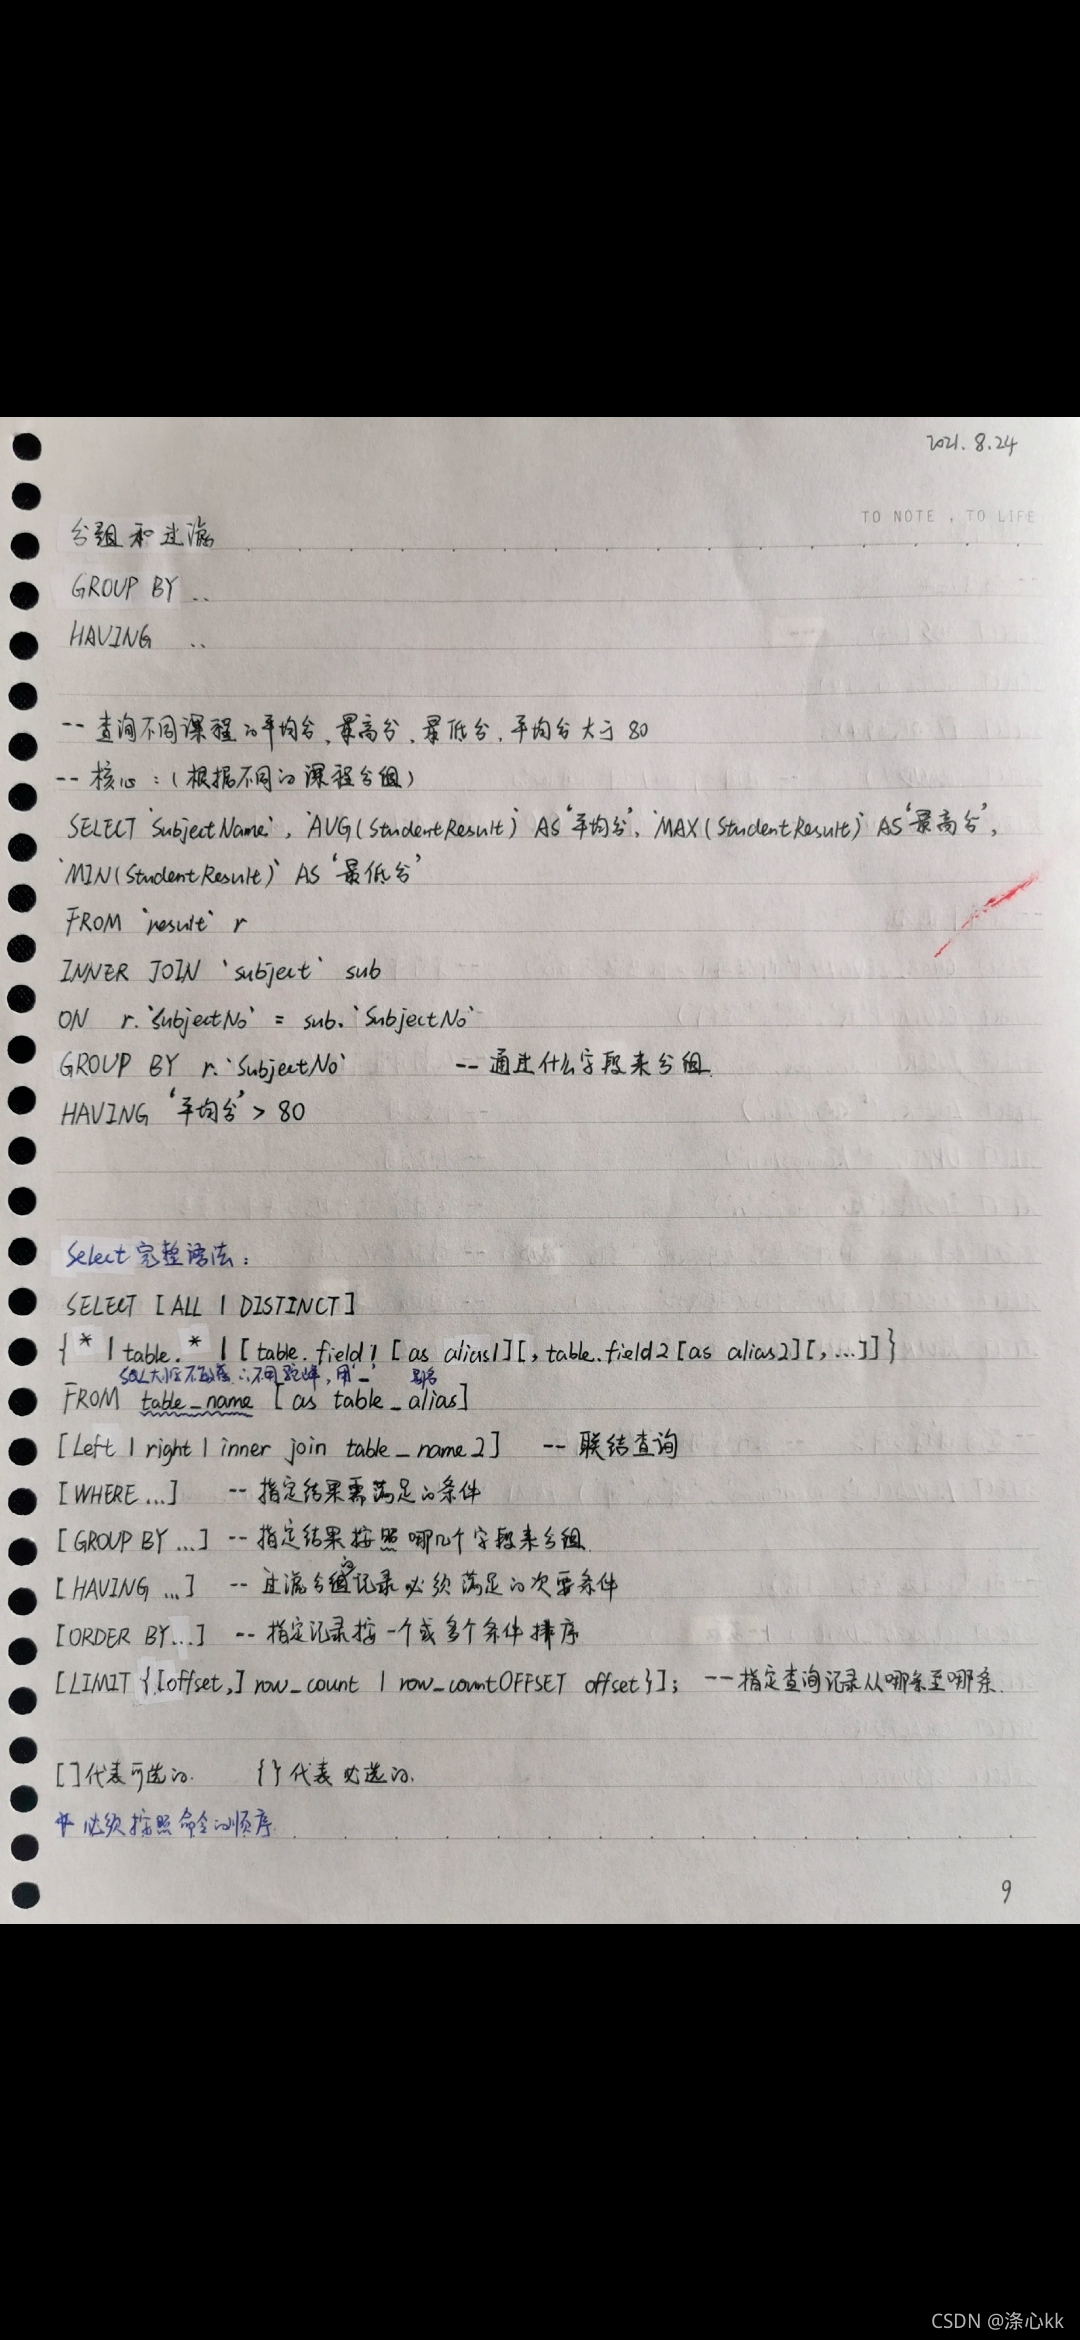 2021.8.24
TO NOTE , TO LIFE
分组和过滤
GROUP BY ..
HAVING ..
-- 查询不同课程的平均分、最高分、最低分，平均分大于 80
-- 核心：(根据不同的课程分组)
SELECT `SubjectName`, `AVG(StudentResult)` AS '平均分', `MAX(StudentResult)` AS '最高分',
`MIN(StudentResult)` AS '最低分'
FROM `result` r
INNER JOIN `subject` sub
ON r.`SubjectNo` = sub.`SubjectNo`
GROUP BY r.`SubjectNo` -- 通过什么字段来分组.
HAVING '平均分' > 80
Select 完整语法：
SELECT [ALL | DISTINCT]
{* | table.* | [table.field1 [as alias1][,table.field2 [as alias2][,...]]}
SQL大小写不敏感 ∴不用驼峰，用'_' 别名
FROM table_name [as table_alias]
[Left | right | inner join table_name2] -- 联结查询
[WHERE ...] -- 指定结果需满足的条件
[GROUP BY ...] -- 指定结果按照哪几个字段来分组.
[HAVING ...] -- 过滤分组的记录必须满足的次要条件
[ORDER BY...] -- 指定记录按一个或多个条件排序
[LIMIT {[offset,] row_count | row_countOFFSET offset}]; -- 指定查询记录从哪条至哪条.
[]代表可选的. {}代表必选的.
* 必须按照命令的顺序.
9
CSDN @涤心kk